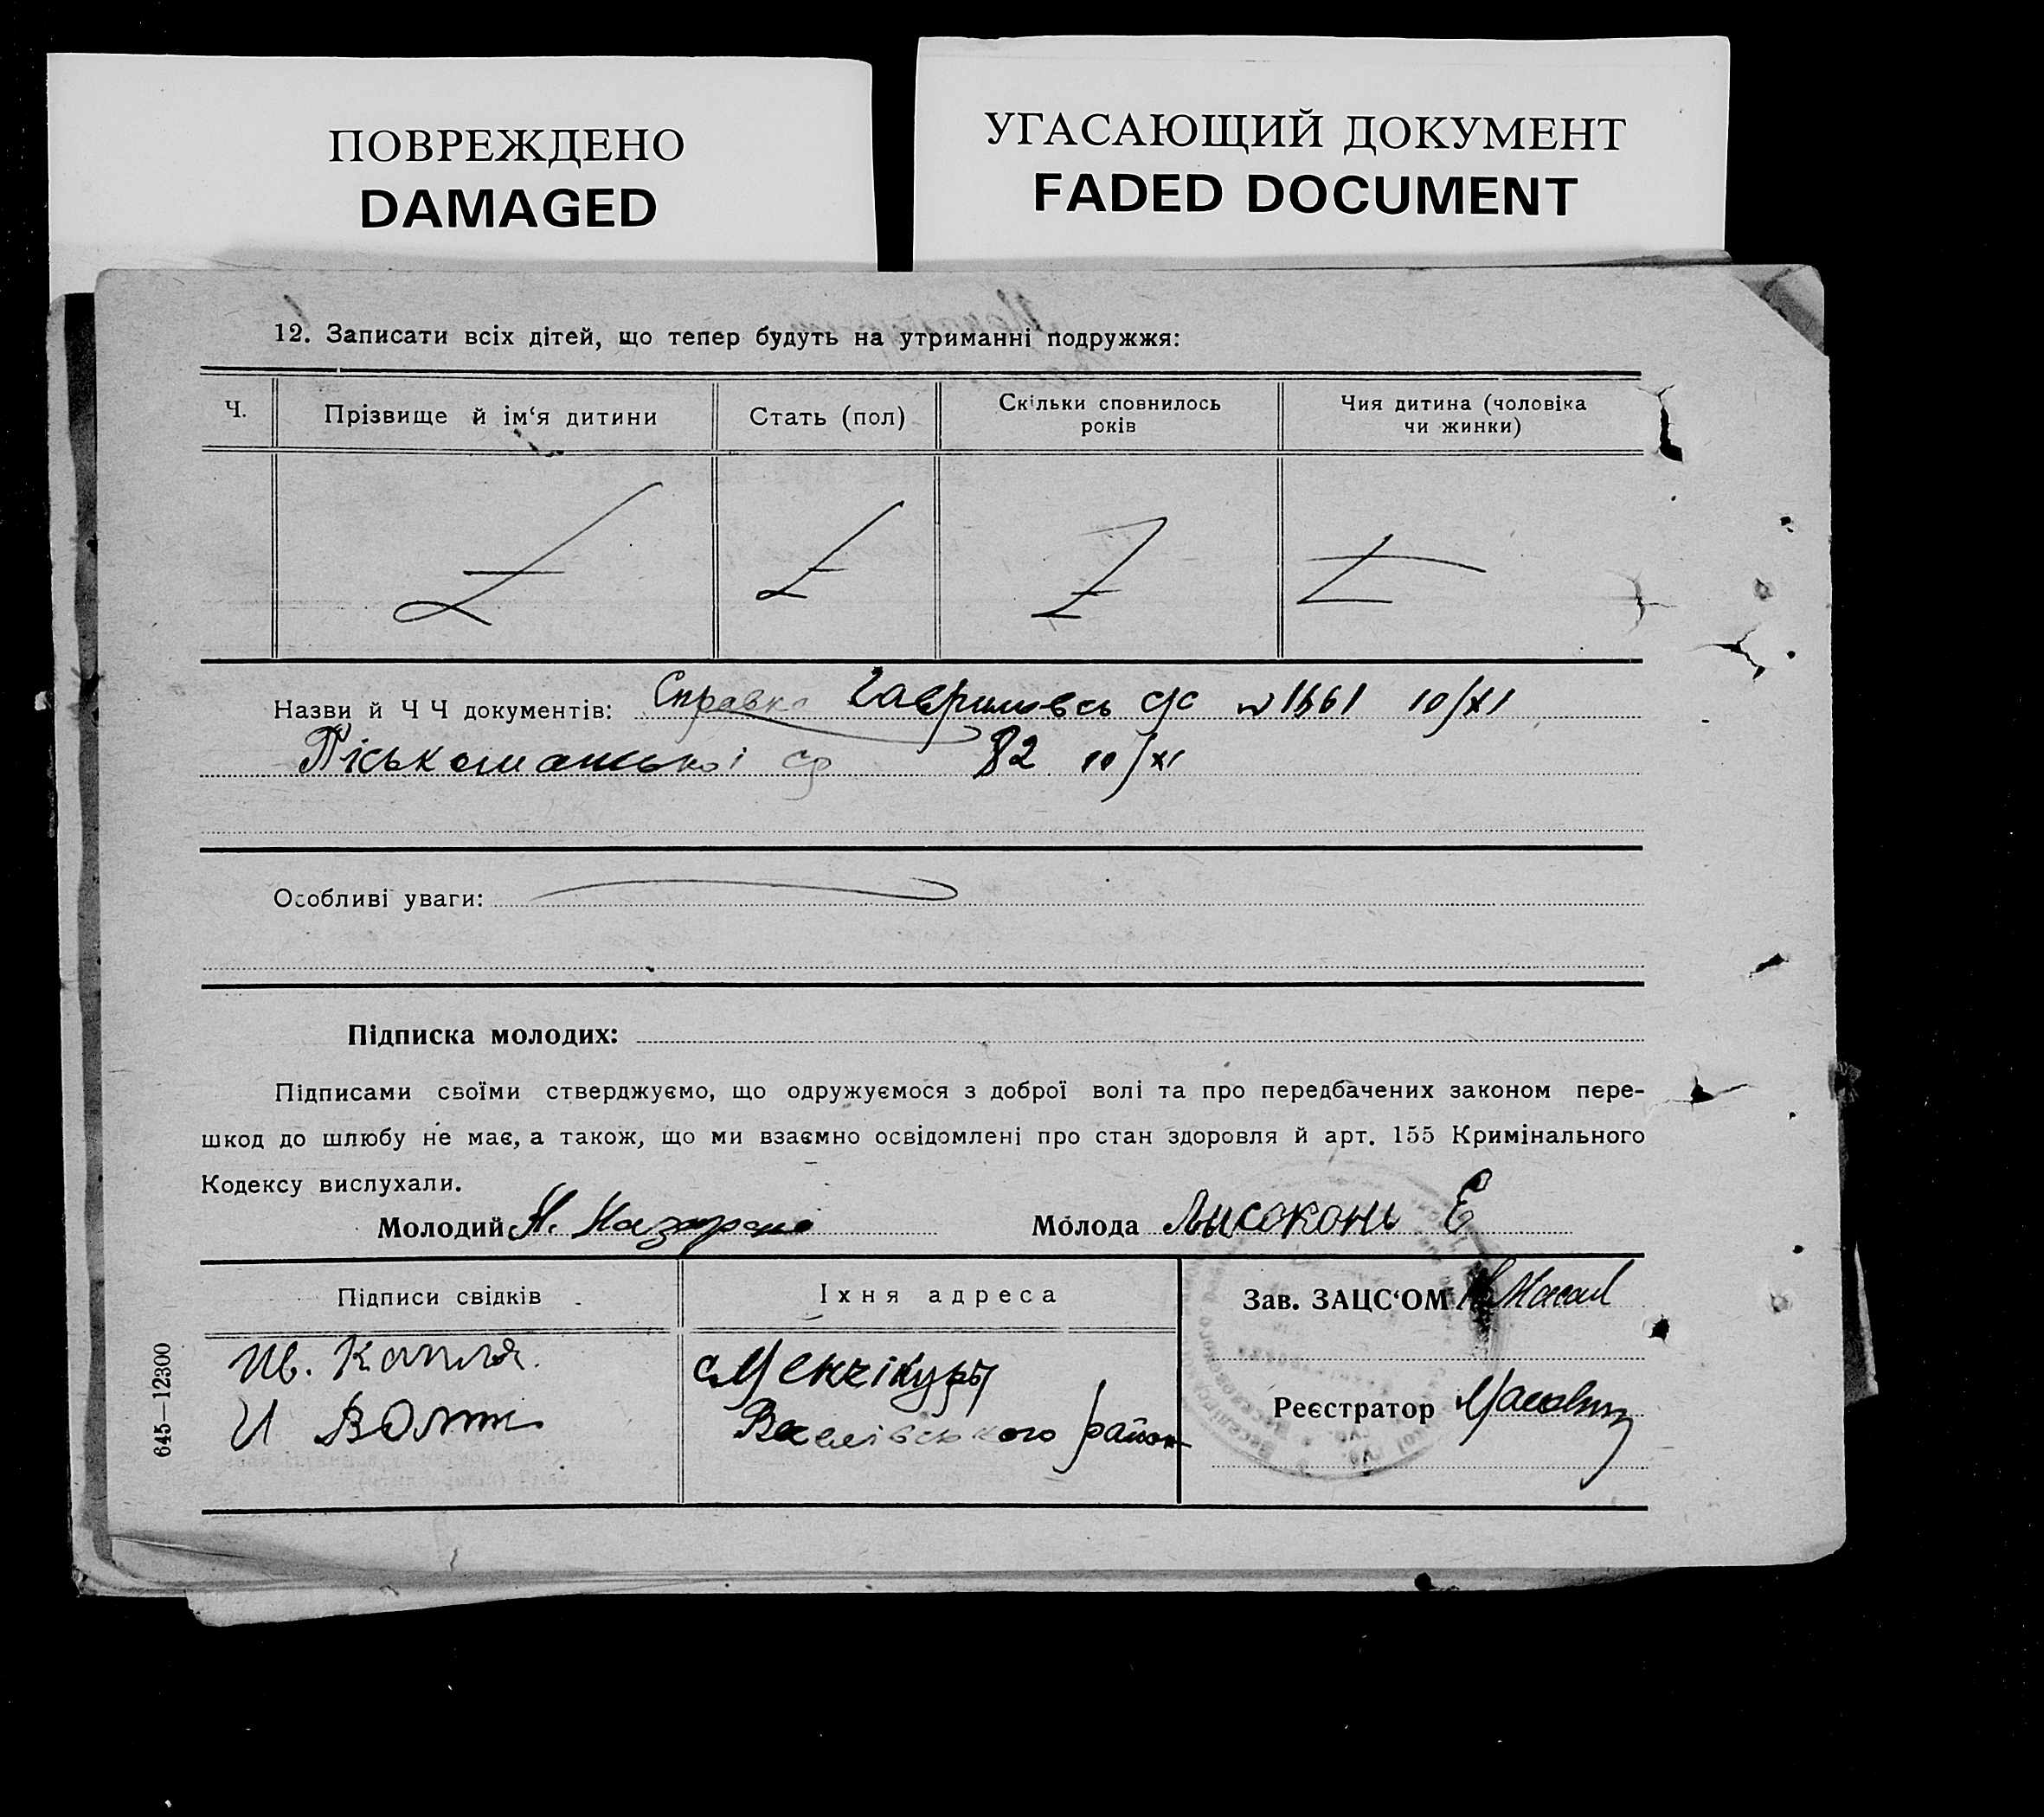 ПОВРЕЖДЕНО
DAMAGED
УГАСАЮЩИЙ ДОКУМЕНТ
FADED DOCUMENT
12. Записати всіх дітей, що тепер будуть на утриманні подружжя:
Ч.
Прізвище й ім‘я дитини
Стать (пол)
Скільки сповнилось
років
Чия дитина (чоловіка
чи жинки)
Назви й Ч Ч документів: Справка Гавриловсь с/с 10/XI
82 10/XI
Особливі уваги:
Підписка молодих:
Підписами своїми стверджуємо, що одружуємося з доброї волі та про передбачених законом пере-
шкод до шлюбу не має, а також, що ми взаємно освідомлені про стан здоровля й арт. 155 Кримінального
Кодексу вислухали.
Молодий Молода Лысоконь Е
Підписи свідків
Іхня адреса
Зав. ЗАЦС‘ОМ
Ив. Капля.
с Менчікури
И
Веселівського район
Реєстратор
645—12300